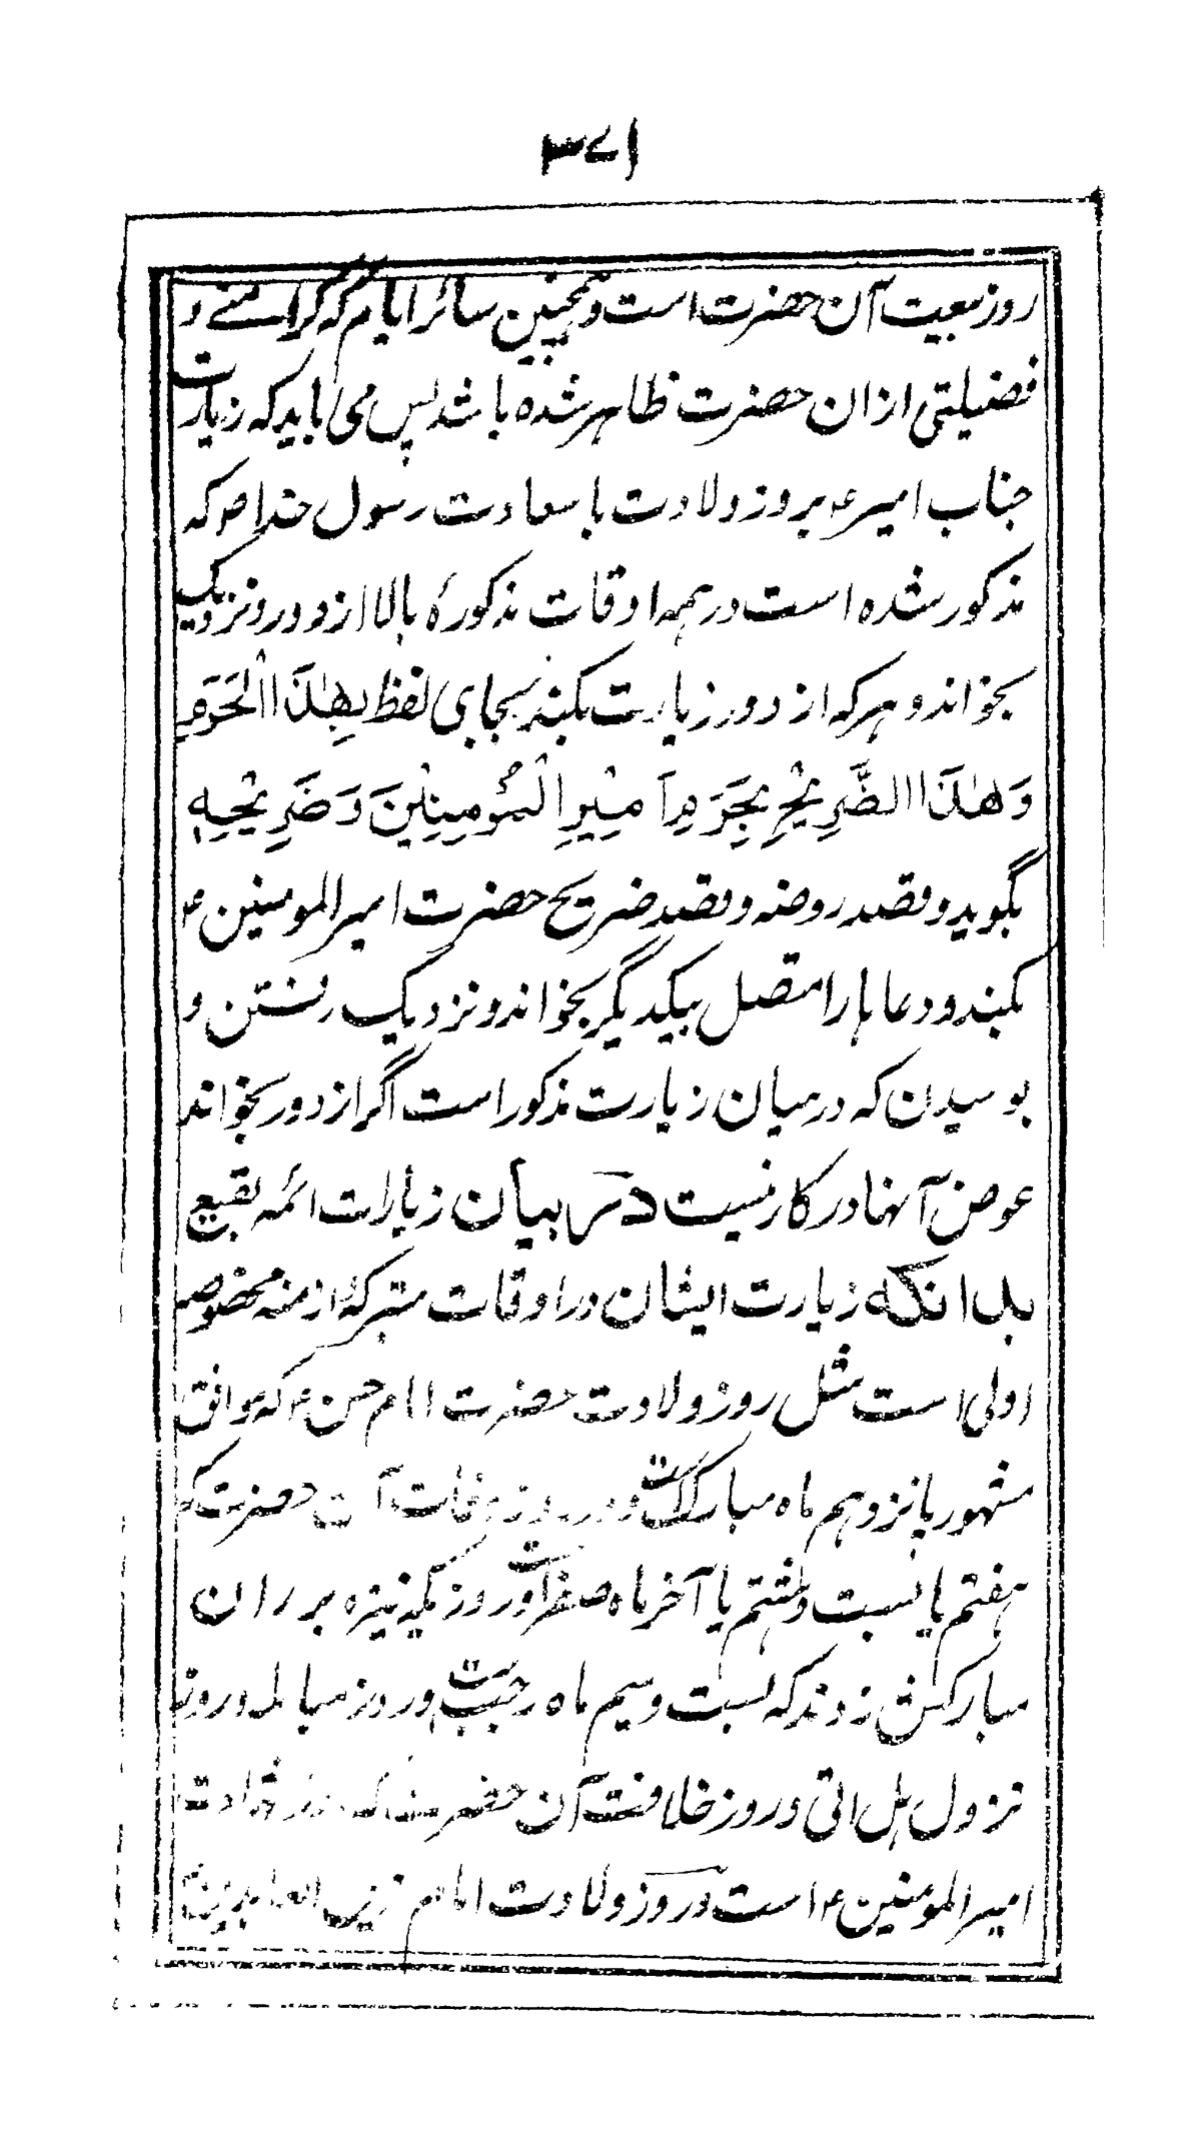 ۳۷۱
روز بیعت آن حضرت است و همچنین سائر ایام که کرامتے و
فضیلتی ازان حضرت ظاهر شده باشد پس می باید که زیارت
جناب امیر؏ بروز ولادت با سعادت رسول خدا ص که
مذکور شده است در همه اوقات مذکورهٔ بالا از دور و نزدیک
بخواند و هر که از دور زیارت بکند بجای لفظ بِهٰذَا الْحَرَمِ
وَهٰذَا الضَّرِیْحِ بِحَرَمِ اَمِیْرِ الْمُؤْمِنِیْنَ وَضَرِیْحِهٖ
بگوید و قصد روضه و قصد ضریح حضرت امیر المومنین؏
بکند و دعاها را متصل بیکدیگر بخواند و نزدیک رفتن و
بوسیدن که درمیان زیارت مذکور است اگر از دور بخواند
عوض آنها در کار نیست در بیان زیارات ائمه بقیع
بدانکه زیارت ایشان در اوقات متبرکه و ازمنه مخصوصه
اولی است مثل روز ولادت حضرت امام حسن؏ که موافق
مشهور پانزدهم ماه مبارک است و روز وفات آن حضرت که
هفتم یا بست و هشتم یا آخر ماه صفر است و روزیکه نیزه بر ران
مبارکش زدند که بست و سیم ماه رجب است و روز مباهله و روز
نزول هل اتی و روز خلافت آن حضرت که روز شهادت
امیر المومنین؏ است و روز ولادت امام زین العابدین